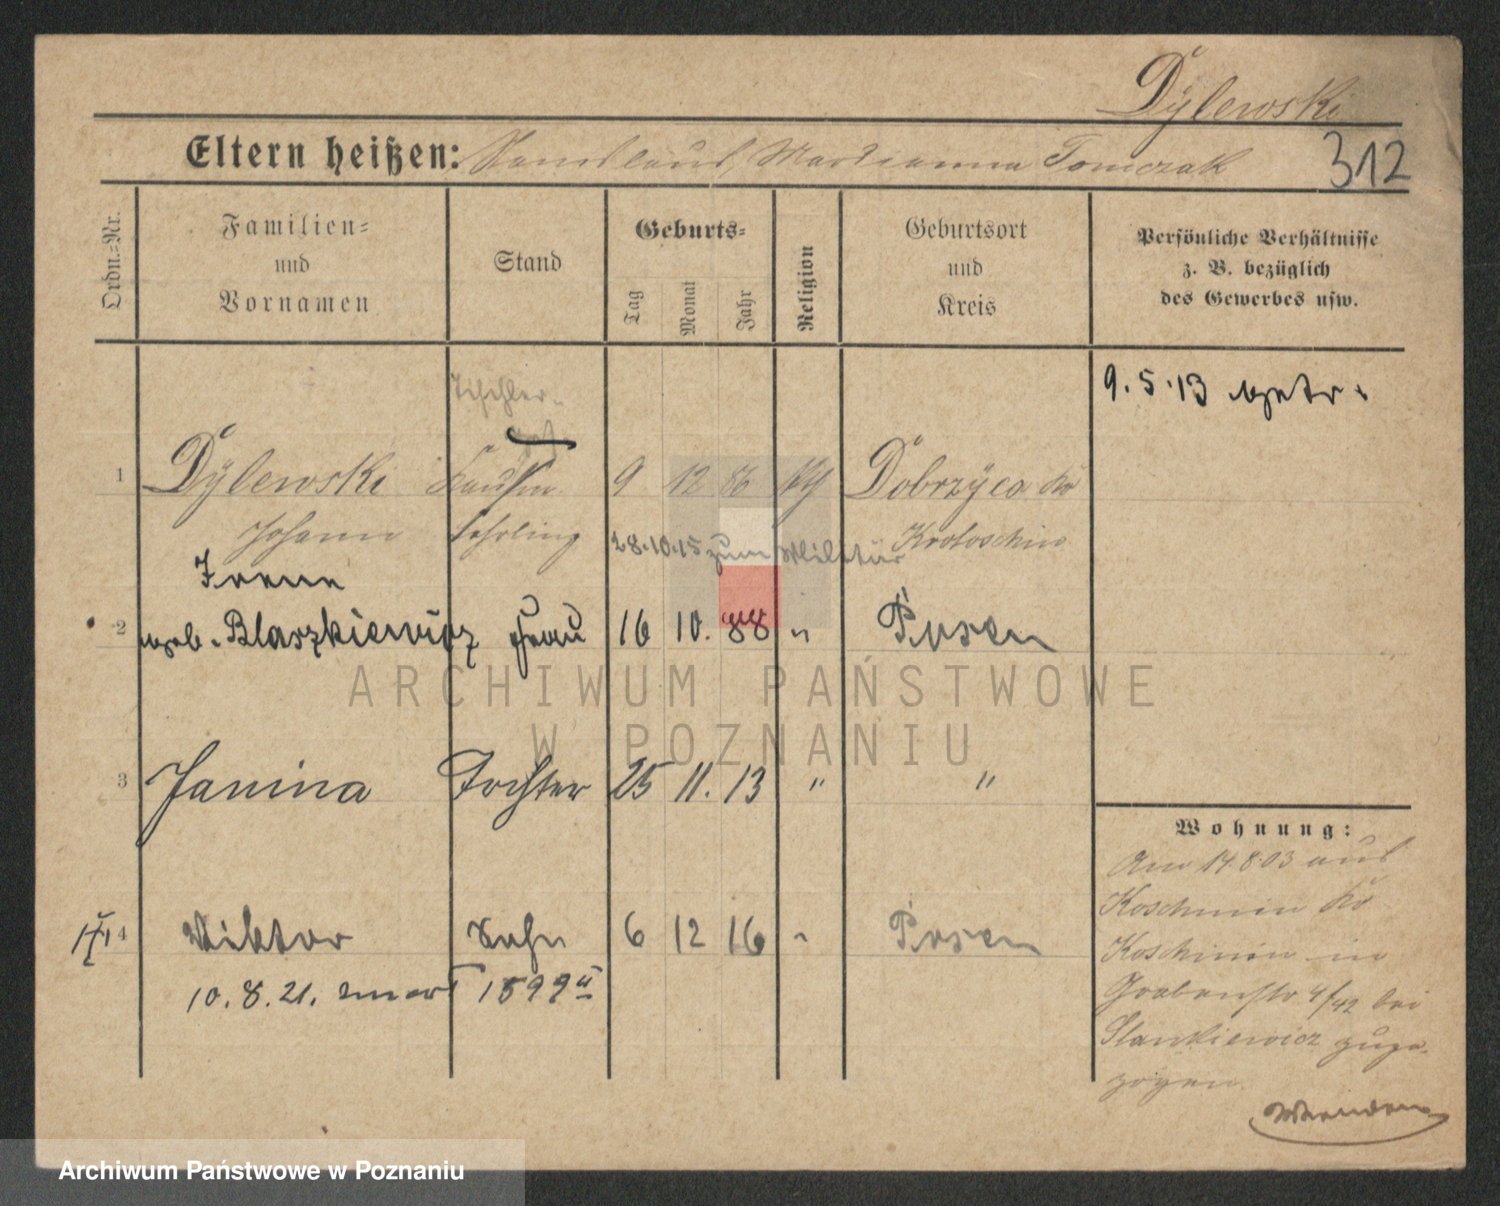 Dÿlewski
Eltern heißen: Stanislaus, Marianna Tomczak
312
Ordn.-Nr.
Familien-
und
Vornamen
Stand
Geburts-
Tag
Monat
Jahr
Religion
Geburtsort
und
Kreis
Persönliche Verhältnisse
z. B. bezüglich
des Gewerbes usw.
Tischler-
9.5.13
1 Dÿlewski 9 12 86 Dobrzÿca Kr
Johann Lehrling Krotoschin
28.10.15 zum Militär
Irene
2 geb. Blaszkiewicz Frau 16 10. 88 " Posen
3 Janina Tochter 25 11. 13 " "
4 Viktor Sohn 6 12 16 " Posen
10.8.21.
Wohnung:
Am 14.8.03 aus
Koschmin Kr
Koschmin in
Grabenstr 4/42 bei
Stankiewicz zuge-
zogen.
Wenden
ARCHIWUM PAŃSTWOWE
W POZNANIU
Archiwum Państwowe w Poznaniu